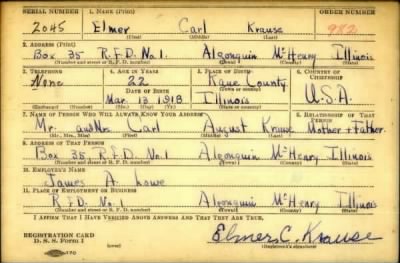 SERIAL NUMBER 1. NAME (Print) ORDER NUMBER
2045 Elmer Carl Krause 982
(First) (Middle) (Last)
2. ADDRESS (Print)
Box 35 R.F.D. No. 1 Algonquin McHenry Illinois
(Number and street or R. F. D. number) (Town) (County) (State)
3. TELEPHONE 4. AGE IN YEARS 5. PLACE OF BIRTH 6. COUNTRY OF CITIZENSHIP
None 22 Kane County U.S.A.
DATE OF BIRTH (Town or county)
Mar. 13 1918 Illinois
(Mo.) (Day) (Yr.) (State or country)
7. NAME OF PERSON WHO WILL ALWAYS KNOW YOUR ADDRESS 8. RELATIONSHIP OF THAT PERSON
Mr. and Mrs Carl August Krause Mother + Father
(Mr., Mrs., Miss) (First) (Middle) (Last)
9. ADDRESS OF THAT PERSON
Box 35 R.F.D. No. 1 Algonquin McHenry Illinois
(Number and street or R. F. D. number) (Town) (County) (State)
10. EMPLOYER'S NAME
James A. Lowe
11. PLACE OF EMPLOYMENT OR BUSINESS
R.F.D. No. 1 Algonquin McHenry Illinois
(Number and street or R. F. D. number) (Town) (County) (State)
I AFFIRM THAT I HAVE VERIFIED ABOVE ANSWERS AND THAT THEY ARE TRUE.
REGISTRATION CARD
D. S. S. FORM 1
Elmer C. Krause
(Registrant's signature)